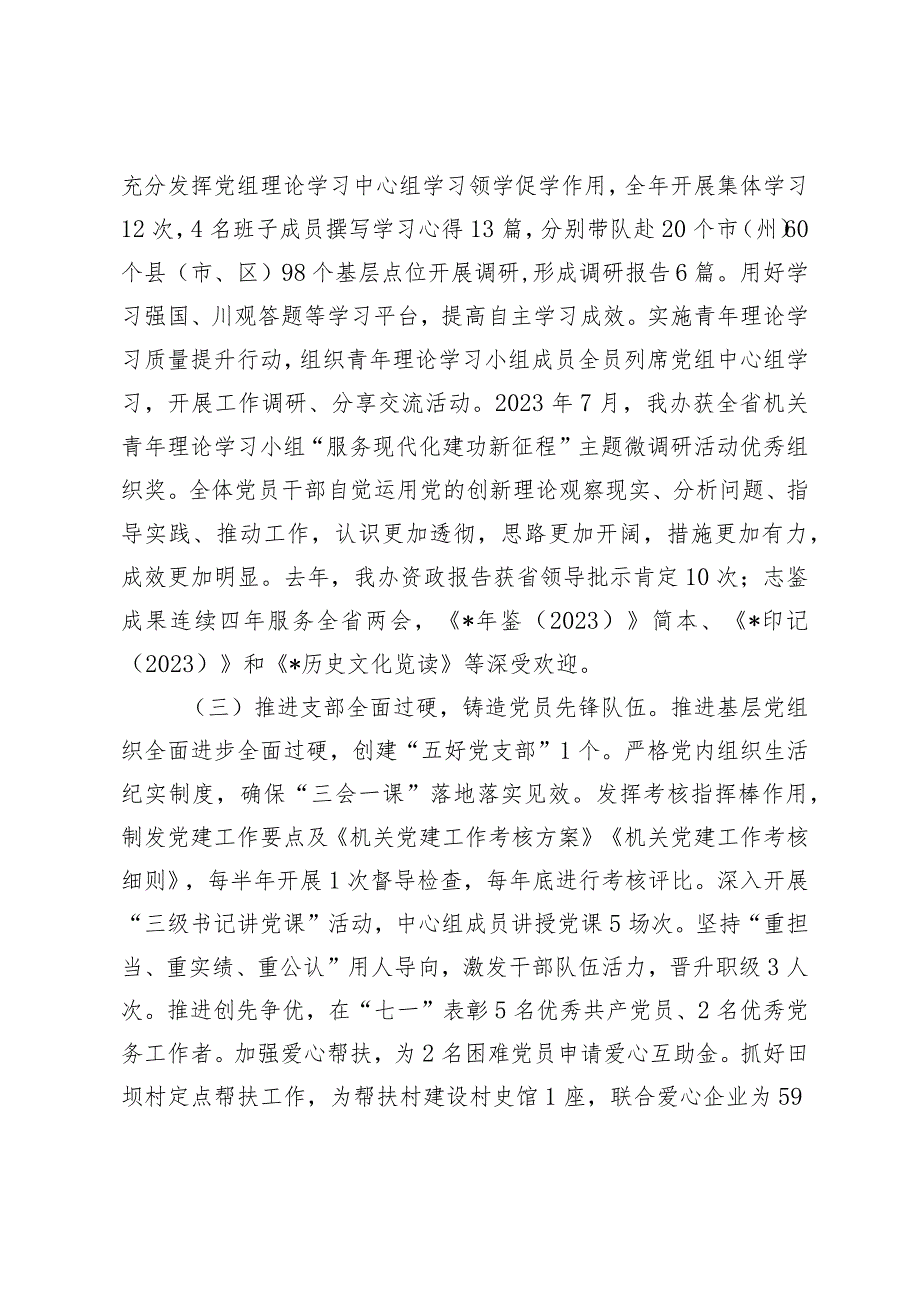 充分发挥党组理论学习中心组学习领学促学作用，全年开展集体学习
12 次，4 名班子成员撰写学习心得 13 篇，分别带队赴 20 个市（州）60
个县（市、区）98 个基层点位开展调研,形成调研报告 6 篇。用好学
习强国、川观答题等学习平台，提高自主学习成效。实施青年理论学
习质量提升行动，组织青年理论学习小组成员全员列席党组中心组学
习，开展工作调研、分享交流活动。2023 年 7 月，我办获全省机关
青年理论学习小组“服务现代化建功新征程”主题微调研活动优秀组
织奖。全体党员干部自觉运用党的创新理论观察现实、分析问题、指
导实践、推动工作，认识更加透彻，思路更加开阔，措施更加有力，
成效更加明显。去年，我办资政报告获省领导批示肯定 10 次；志鉴
成果连续四年服务全省两会，《*年鉴（2023）》简本、《*印记
（2023）》和《*历史文化览读》等深受欢迎。
（三）推进支部全面过硬，铸造党员先锋队伍。推进基层党组
织全面进步全面过硬，创建“五好党支部”1 个。严格党内组织生活
纪实制度，确保“三会一课”落地落实见效。发挥考核指挥棒作用，
制发党建工作要点及《机关党建工作考核方案》《机关党建工作考核
细则》，每半年开展 1 次督导检查，每年底进行考核评比。深入开展
“三级书记讲党课”活动，中心组成员讲授党课 5 场次。坚持“重担
当、重实绩、重公认”用人导向，激发干部队伍活力，晋升职级 3 人
次。推进创先争优，在“七一”表彰 5 名优秀共产党员、2 名优秀党
务工作者。加强爱心帮扶，为 2 名困难党员申请爱心互助金。抓好田
坝村定点帮扶工作，为帮扶村建设村史馆 1 座，联合爱心企业为 59